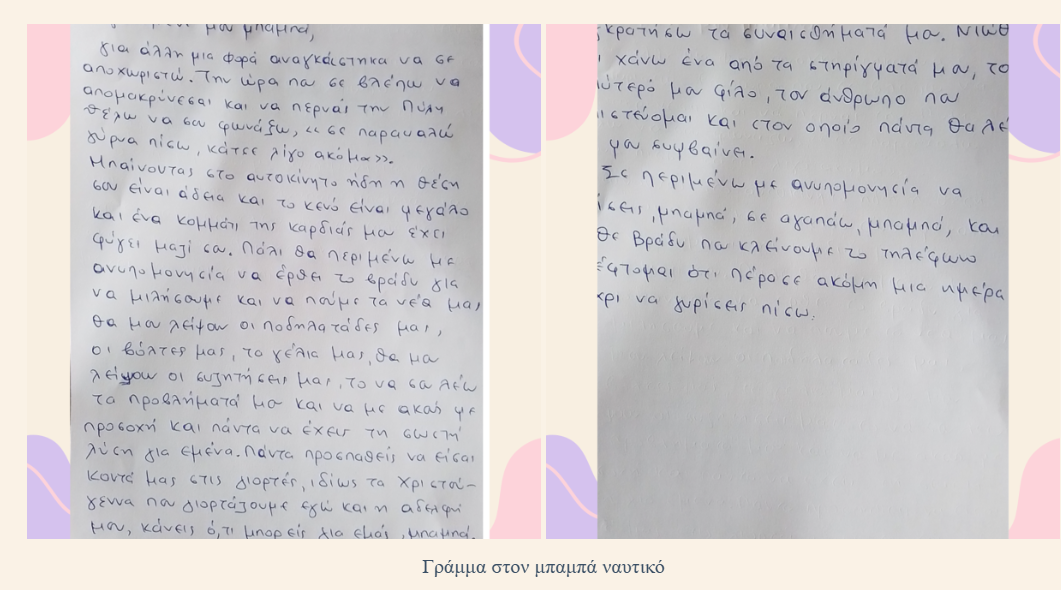 μου μπαμπά,
για άλλη μια φορά αναγκάστηκα να σε
αποχωριστώ. Την ώρα που σε βλέπω να
απομακρύνεσαι και να περνάς την πύλη
θέλω να σου φωνάξω, «σε παρακαλώ
γύρνα πίσω, κάτσε λίγο ακόμα».
Μπαίνοντας στο αυτοκίνητο ήδη η θέση
σου είναι άδεια και το κενό είναι μεγάλο
και ένα κομμάτι της καρδιάς μου έχει
φύγει μαζί σου. Πάλι θα περιμένω με
ανυπομονησία να έρθει το βράδυ για
να μιλήσουμε και να πούμε τα νέα μας,
θα μου λείψουν οι ποδηλατάδες μας,
οι βόλτες μας, το γέλιο μας, θα μου
λείψουν οι συζητήσεις μας, το να σου λέω
τα προβλήματά μου και να με ακούς με
προσοχή και πάντα να έχεις τη σωστή
λύση για εμένα. Πάντα προσπαθείς να είσαι
κοντά μας στις γιορτές, ιδίως τα Χριστού-
γεννα που γιορτάζουμε εγώ και η αδελφή
μου, κάνεις ό,τι μπορείς για εμάς, μπαμπά.
κρατήσω τα συναισθήματά μου. Νιώθ
χάνω ένα από τα στηρίγματά μου, το
ύτερό μου φίλο, τον άνθρωπο που
ιστεύομαι και στον οποίο πάντα θα λέ
μου συμβαίνει.
Σε περιμένω με ανυπομονησία να
ίσεις, μπαμπά, σε αγαπάω, μπαμπά, και
θε βράδυ που κλείνουμε το τηλέφωνο
έφτομαι ότι πέρασε ακόμη μια ημέρα
χρι να γυρίσεις πίσω.
Γράμμα στον μπαμπά ναυτικό